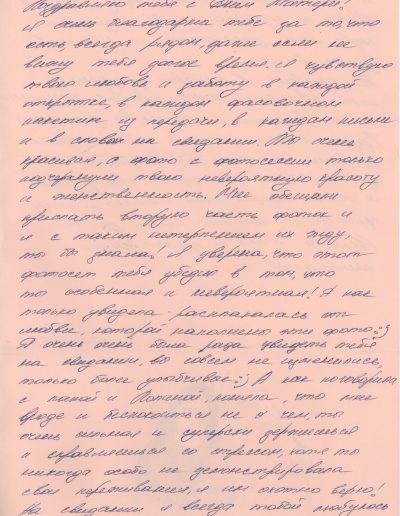 Поздравляю тебя с Днем Матери!
Я очень благодарна тебе за то, что
есть, всегда рядом, даже если не
вижу тебя долгое время. Я чувствую
твою любовь и заботу в каждой
открытке, в каждом фасовочном
пакетике из передачи, в каждом письме
и в словах на свидании. Ты очень
красивая, а фото с фотосессии только
подчеркнули твою невероятную красоту
и женственность. Мне обещали
прислать вторую часть фоток и
я с таким нетерпением их жду,
ты бы знала! Я уверена, что этот
фотосет тебя убедил в том, что
ты особенная и невероятная! Я как
только увидела - расплакалась от
любви, которой наполнены эти фото :)
Я очень-очень была рада увидеть тебя
на свидании, вы совсем не изменились,
только более улыбчивые :) А как поговорила
с папой и , поняла, что мне
вроде и беспокоиться не о чем, ты
очень сильная и суперски держишься
и справляешься со стрессом, хотя ты
никогда особо не демонстрировала
свои переживания, я им охотно верю!
На свидании я всегда тобой любуюсь